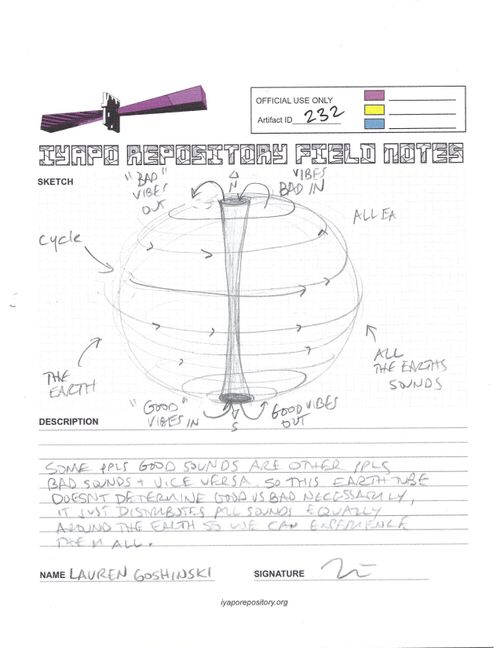 OFFICIAL USE ONLY
Artifact ID 232
IYAPO REPOSITORY FIELD NOTES
SKETCH
"BAD" VIBES OUT
N
VIBES BAD IN
ALL EA
Cycle
THE EARTH
ALL THE EARTHS SOUNDS
"GOOD" VIBES IN
S
GOOD VIBES OUT
DESCRIPTION
SOME PPLS GOOD SOUNDS ARE OTHER PPLS
BAD SOUNDS + VICE VERSA. SO THIS EARTH TUBE
DOESNT DETERMINE GOOD VS BAD NECESSARILY,
IT JUST DISTRIBUTES ALL SOUNDS EQUALLY
AROUND THE EARTH SO WE CAN EXPERIENCE
THEM ALL.
NAME LAUREN GOSHINSKI SIGNATURE
iyaporepository.org